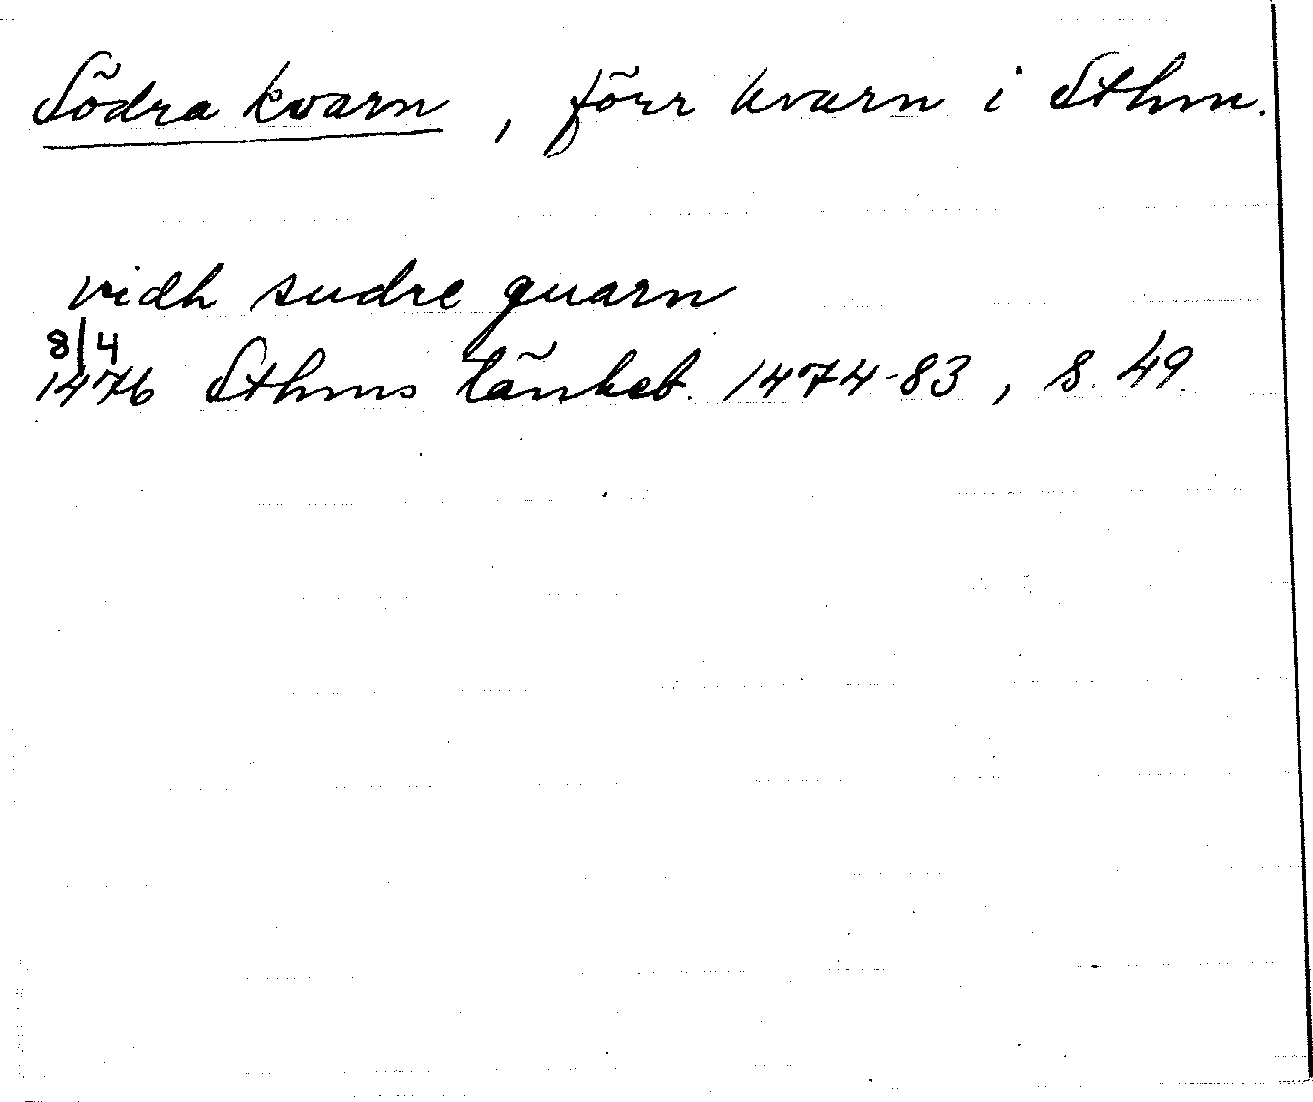 Södra kvarn, förr kvarn i Sthm.
vidh sudre quarn
8/4
1476 Sthms tänkeb. 1474-83, s. 49.